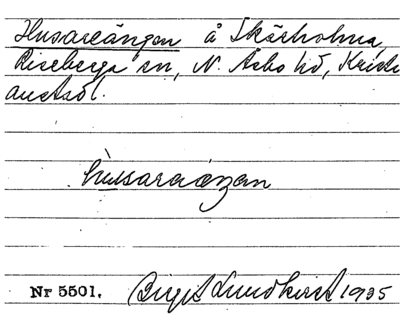 Husareängen å Skäreholma,
Riseberga sn, N. Åsbo hd, Kristi-
anstads l.
hùsaraæŋan
Nr 5501. Birgit Lundkvist 1935